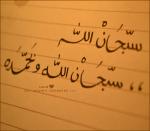 سبحان الله
،، سبحان الله وبحمده